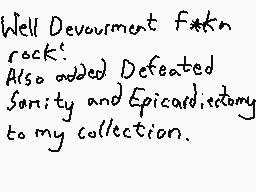 Well Devourment f*kn
rock!
Also added Defeated
Sanity and Epicardiectomy
to my collection.